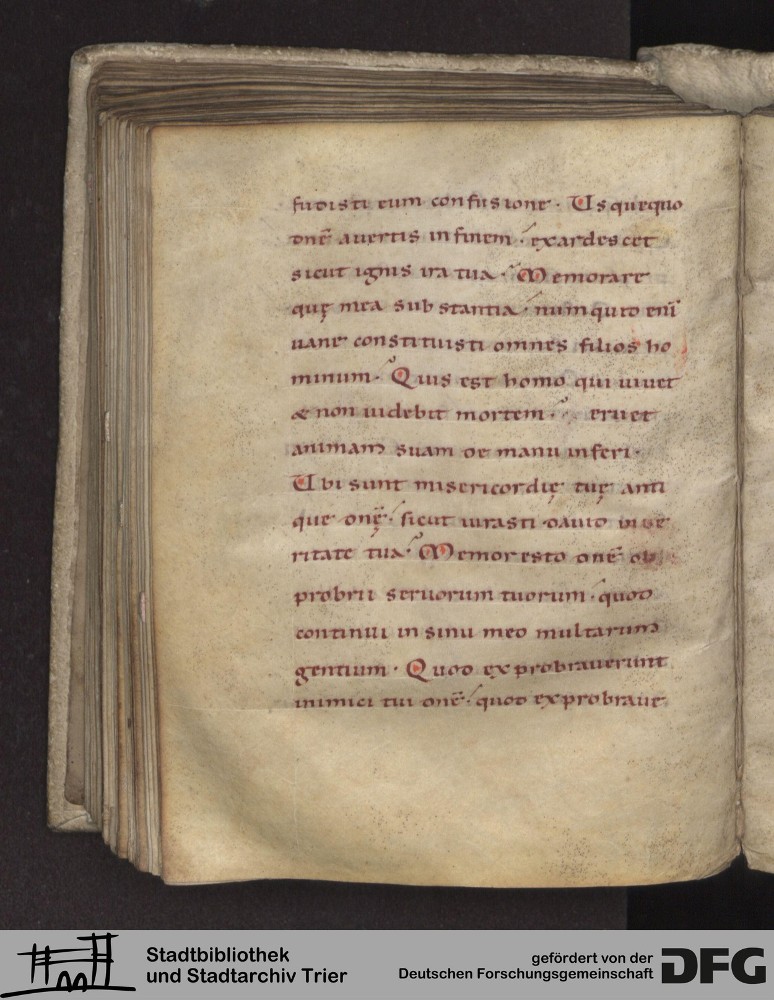 fudisti eum confusione. Usquequo
dnē avertis in finem. exardescet
sicut ignis ira tua. Memorare
quę mea substantia. numquid eni̅
uane constituisti omnes filios ho
minum. Quis est homo qui uiuet
& non uidebit mortem. eruet
animam suam de manu inferi.
Ubi sunt misericordię tuę anti
quę dnē. sicut iurasti dauid in ue
ritate tua. Memor esto dnē ob
probrii seruorum tuorum. quod
continui in sinu meo multarum
gentium. Quod exprobrauerunt
inimici tui dnē. quod exprobraue
Stadtbibliothek
und Stadtarchiv Trier
gefördert von der
Deutschen Forschungsgemeinschaft
DFG